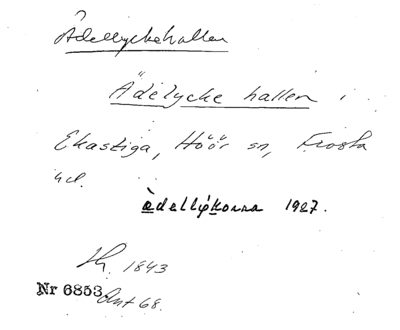 Ädellyckehallen
Ädelycke hallen i
Ekastiga, Höör sn, Frosta
hd.
àdellýkorna 1927.
Sk. 1843
Nr 6853 Ant 68.